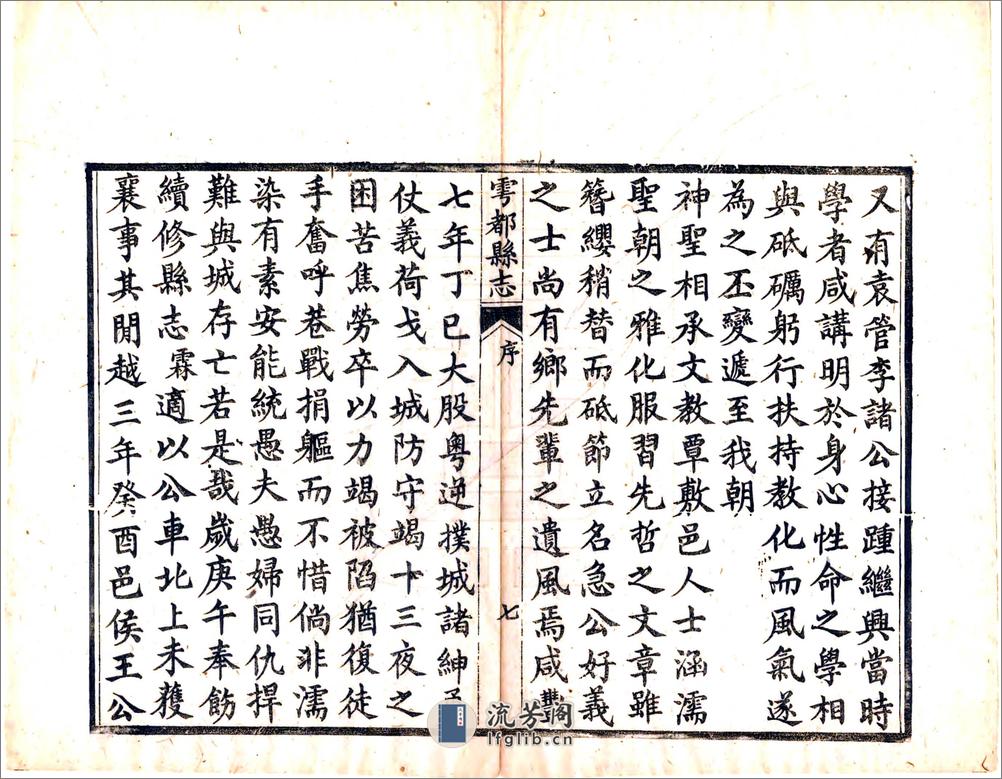 又有袁管李諸公接踵繼興當時
學者咸講明於身心性命之學相
與砥礪躬行扶持教化而風氣遂
為之丕變遞至我朝
神聖相承文教覃敷邑人士涵濡
聖朝之雅化服習先哲之文章雖
簪纓稍替而砥節立名急公好義
之士尚有鄉先輩之遺風焉咸豐
雩都縣志
序
七
七年丁巳大股粵逆撲城諸紳
仗義荷戈入城防守竭十三夜之
困苦焦勞卒以力竭被陷猶復徒
手奮呼巷戰捐軀而不惜倘非濡
染有素安能統愚夫愚婦同仇捍
難與城存亡若是哉歲庚午奉飭
續修縣志霖適以公車北上未獲
襄事其閒越三年癸酉邑侯王公
流芳阁
lfglib.cn